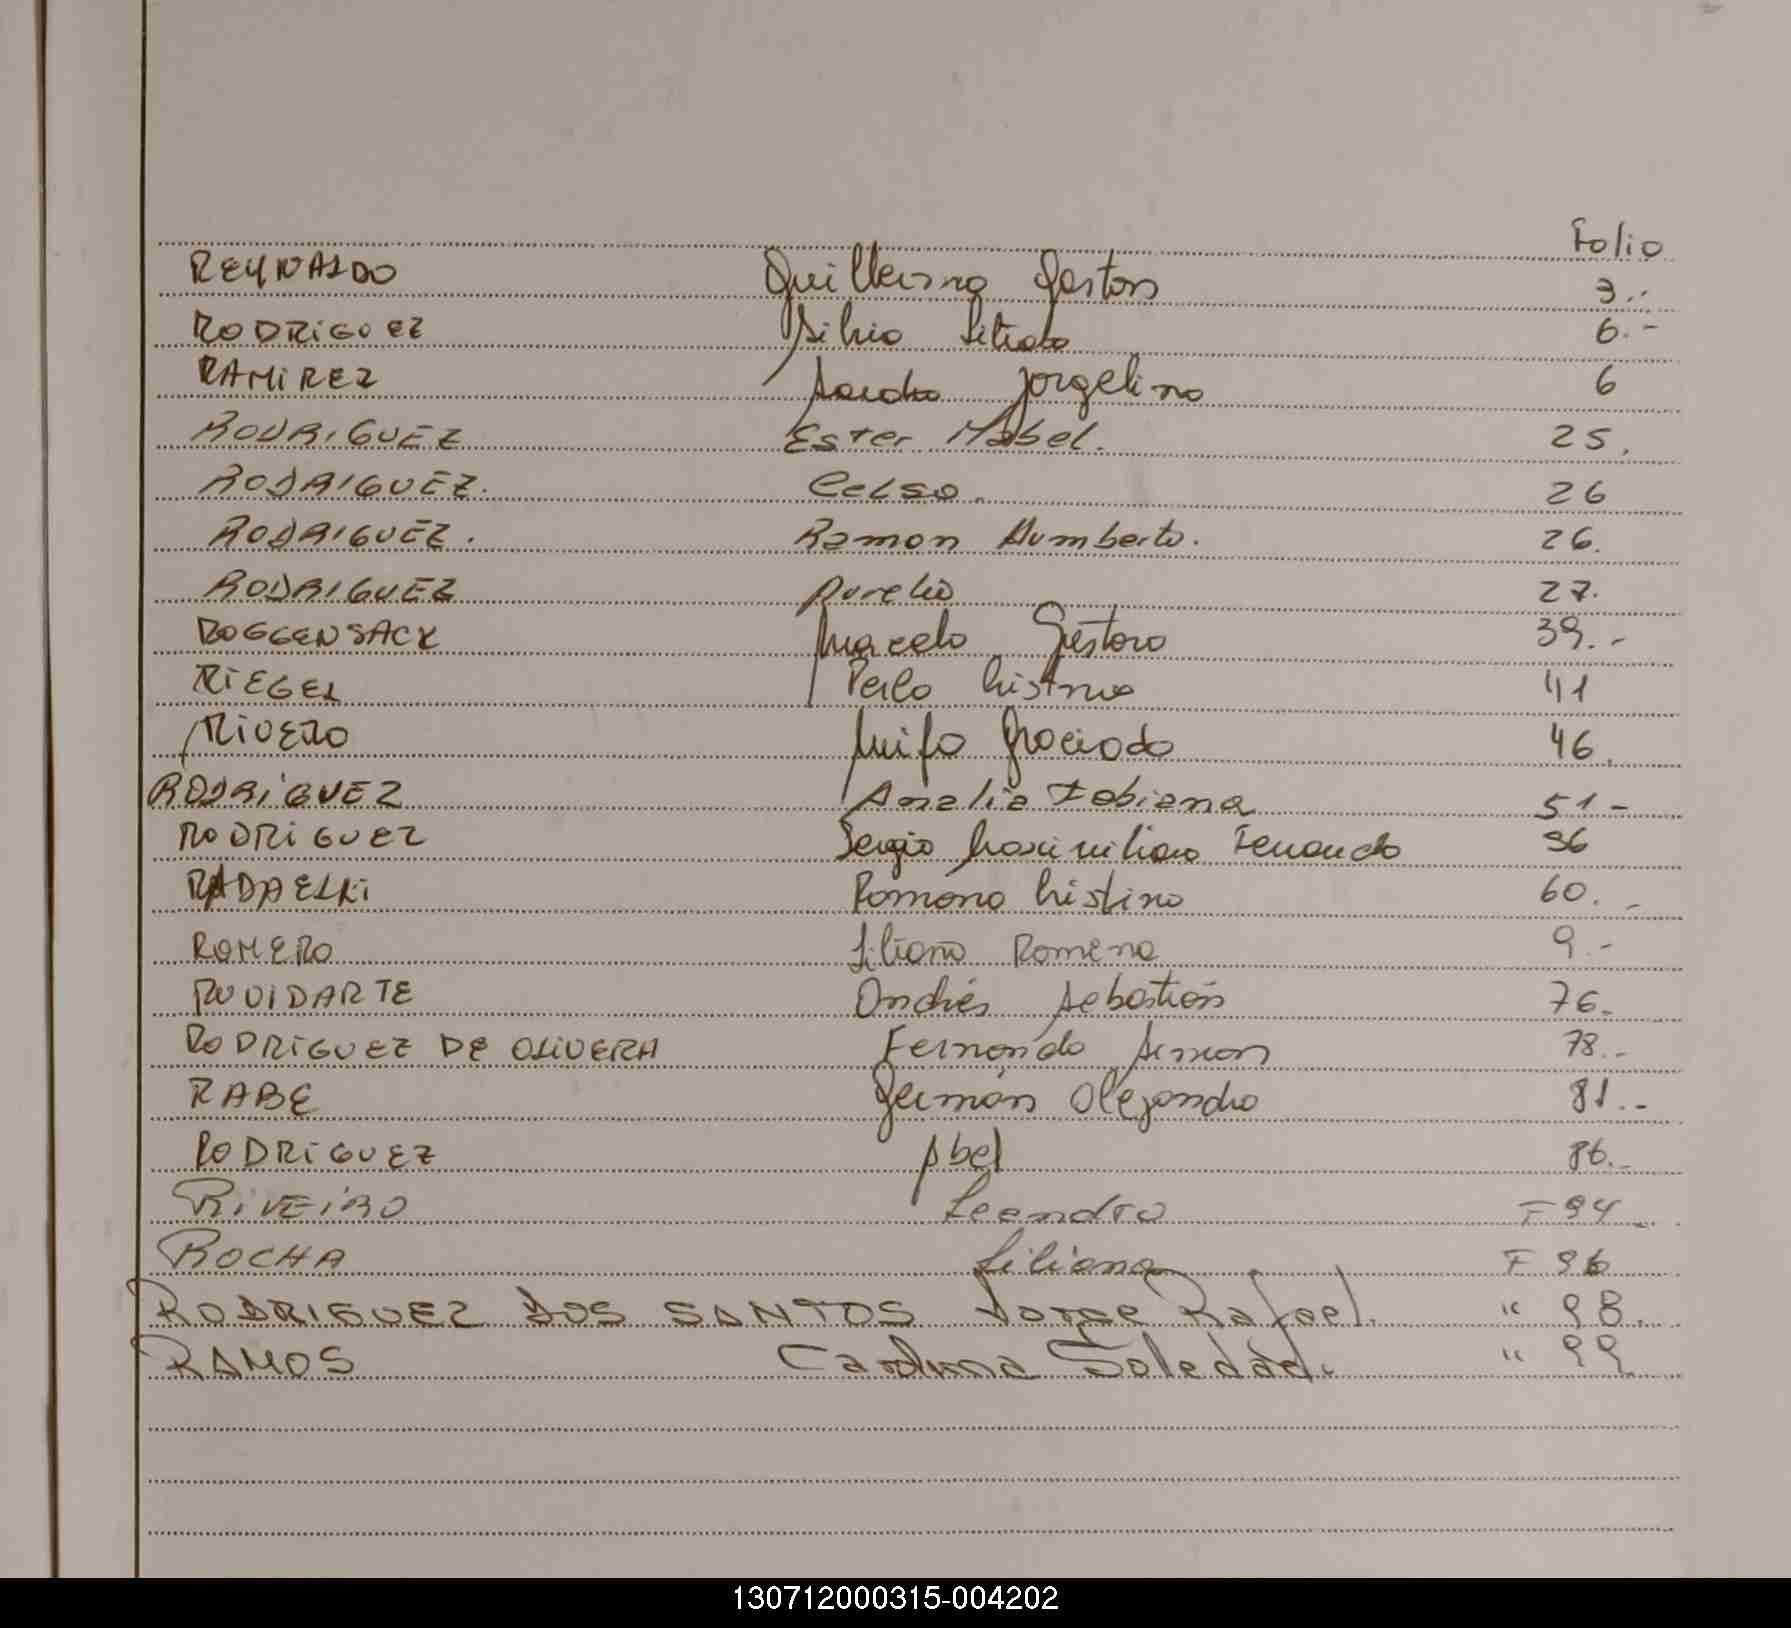 Folio
REYNALDO Guillermo Gaston 3.-
RODRIGUEZ Silvio 6.-
RAMIREZ Sandra Jorgelina 6
RODRIGUEZ Ester Mabel. 25.
RODRIGUEZ. Celso. 26
RODRIGUEZ. Ramon Humberto. 26.
RODRIGUEZ Aurelio 27.
ROGGENSACK Marcelo Gustavo 39.-
RIEGEL Cristina 41
RIVERO Graciada 46.
RODRIGUEZ Analia Fabiana 51-
RODRIGUEZ Sergio Maximiliano Fernando 56
RADAELLI Romana Cristina 60.-
ROMERO Liliana Romena 9.-
RUVIDARTE Andrés Sebastián 76.
RODRIGUEZ DE OLIVERA Fernando Simon 78.-
RABE Germán Alejandro 81.-
RODRIGUEZ Abel 86.-
RIVEIRO Leandro F 94.
ROCHA Liliana F 96
RODRIGUEZ DOS SANTOS Jorge Rafael. " 98.
RAMOS Carolina Soledad. " 99
130712000315-004202